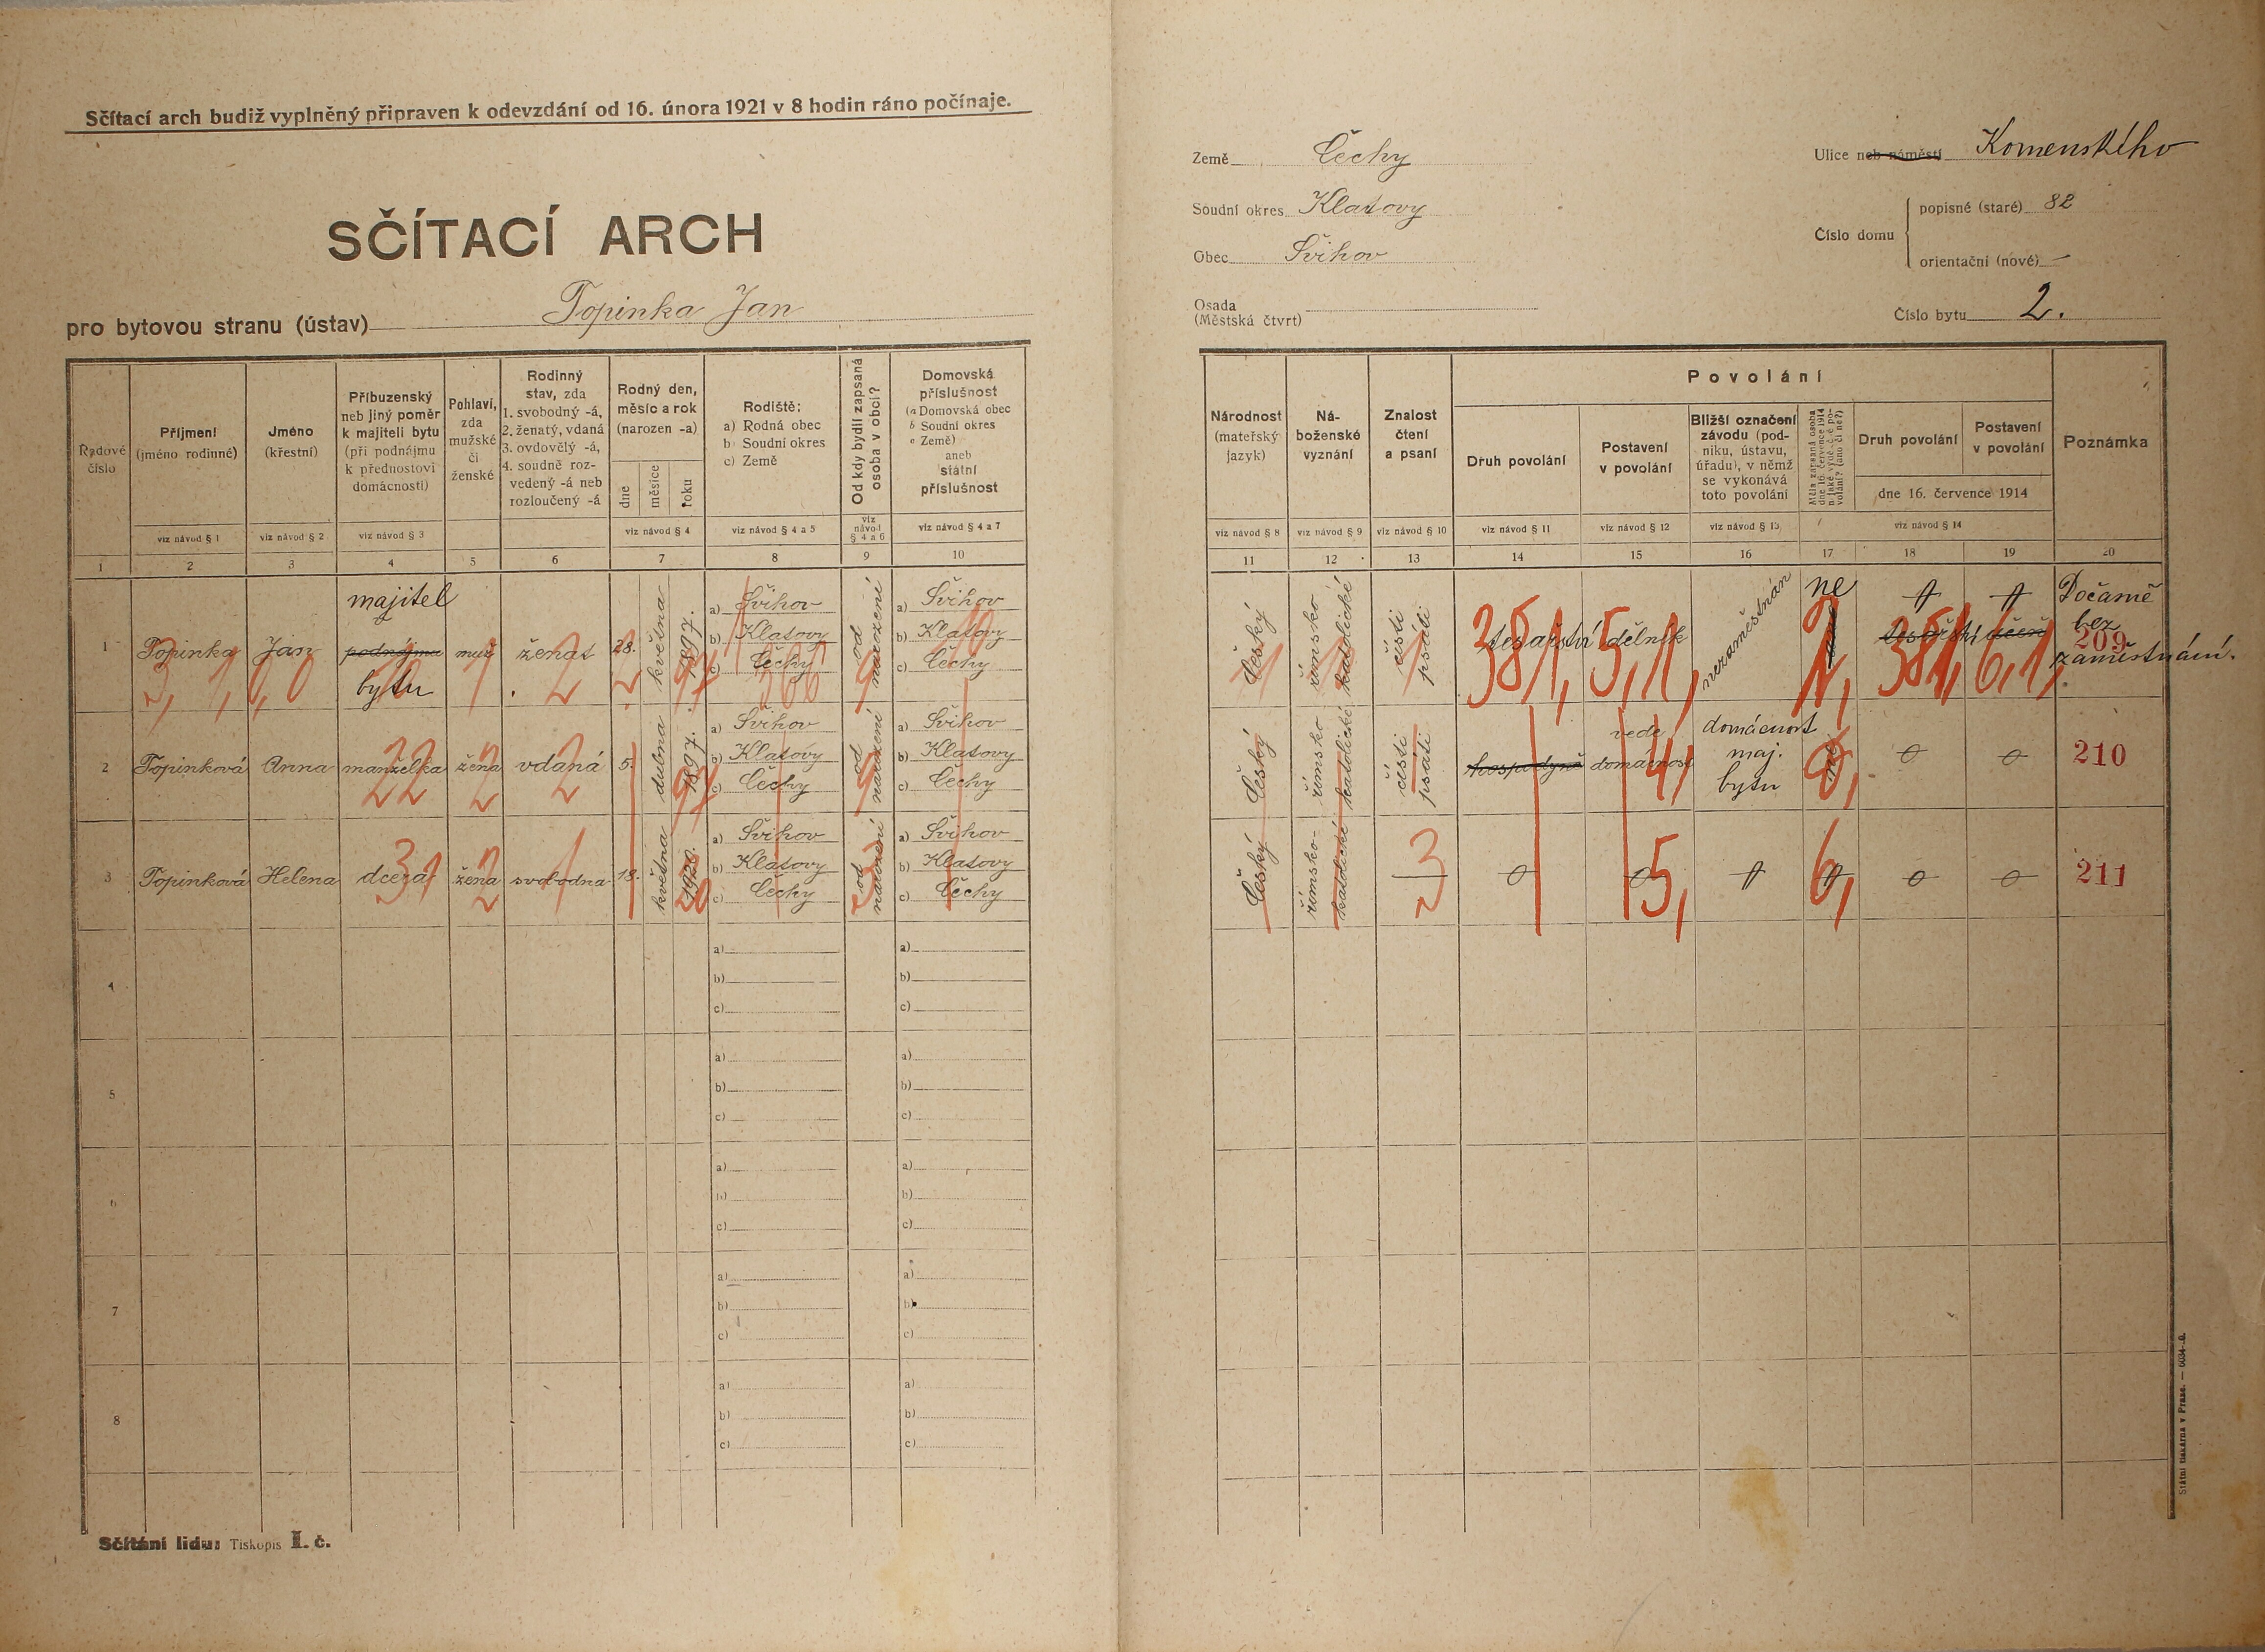 Sčítací arch budiž vyplněný připraven k odevzdání od 16. února 1921 v 8 hodin ráno počínaje.
SČÍTACÍ ARCH
pro bytovou stranu (ústav) Topinka Jan
Země Čechy
Soudní okres Klatovy
Obec Švihov
Osada
(Městská čtvrt)
Ulice neb náměstí Komenského
Číslo domu
popisné (staré) 82
orientační (nové) —
Číslo bytu 2.
Řadové
číslo
Příjmení
(jméno rodinné)
viz návod § 1
Jméno
(křestní)
viz návod § 2
Příbuzenský
neb jiný poměr
k majiteli bytu
(při podnájmu
k přednostovi
domácnosti)
viz návod § 3
Pohlaví,
zda
mužské
či
ženské
Rodinný
stav, zda
1. svobodný -á,
2. ženatý, vdaná
3. ovdovělý -á,
4. soudně roz-
vedený -á neb
rozloučený -á
Rodný den,
měsíc a rok
(narozen -a)
dne
měsíce
roku
viz návod § 4
Rodiště:
a) Rodná obec
b) Soudní okres
c) Země
viz návod § 4 a 5
Od kdy bydlí zapsaná
osoba v obci?
viz
návod
§ 4 a 6
Domovská
příslušnost
(a Domovská obec
b Soudní okres
c Země)
aneb
státní
příslušnost
viz návod § 4 a 7
Národnost
(mateřský
jazyk)
viz návod § 8
Ná-
boženské
vyznání
viz návod § 9
Znalost
čtení
a psaní
viz návod § 10
Povolání
Druh povolání
viz návod § 11
Postavení
v povolání
viz návod § 12
Bližší označení
závodu (pod-
niku, ústavu,
úřadu), v němž
se vykonává
toto povolání
viz návod § 13
Měla zapsaná osoba
dne 16. července 1914
Druh povolání
Postavení
v povolání
dne 16. července 1914
viz návod § 14
Poznámka
1 2 3 4 5 6 7 8 9 10
11 12 13 14 15 16 17 18 19 20
1 Topinka Jan
majitel
podnájmu
bytu
muž ženat 28. května 1897.
a) Švihov
b) Klatovy
c) Čechy
od
narození
a) Švihov
b) Klatovy
c) Čechy
Český
římsko
katolické
čísti
psáti
tesařství dělník nezaměstnán
ne
tesařství učeň
Dočasně
bez
zaměstnání.
381, 5,1, 2, 381, 6,1,
209
2 Topinková Anna manželka žena vdaná 5. dubna 1897.
a) Švihov
b) Klatovy
c) Čechy
od
narození
a) Švihov
b) Klatovy
c) Čechy
Český
římsko
katolické
čísti
psáti
hospodyně
vede
domácnost
domácnost
maj.
bytu
210
3 Topinková Helena dcera žena svobodna 18. května 1920.
a) Švihov
b) Klatovy
c) Čechy
od
narození
a) Švihov
b) Klatovy
c) Čechy
Český
římsko-
katolické
5, 6,
211
4
a)
b)
c)
a)
b)
c)
5
a)
b)
c)
a)
b)
c)
6
a)
b)
c)
a)
b)
c)
7
a)
b)
c)
a)
b)
c)
8
a)
b)
c)
a)
b)
c)
Sčítání lidu: Tiskopis I. č.
Státní tiskárna v Praze. —